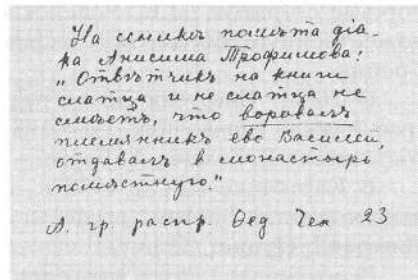 На ссылкѣ помѣта діа-
ка Анисима Трофимова:
"Отвѣтчикъ на книги
слатца и не слатца не
смѣетъ, что воровалъ
племянникъ ево Василей,
отдавалъ в монастырь
помѣстную."
А. гр. распр. Вед Чел 23